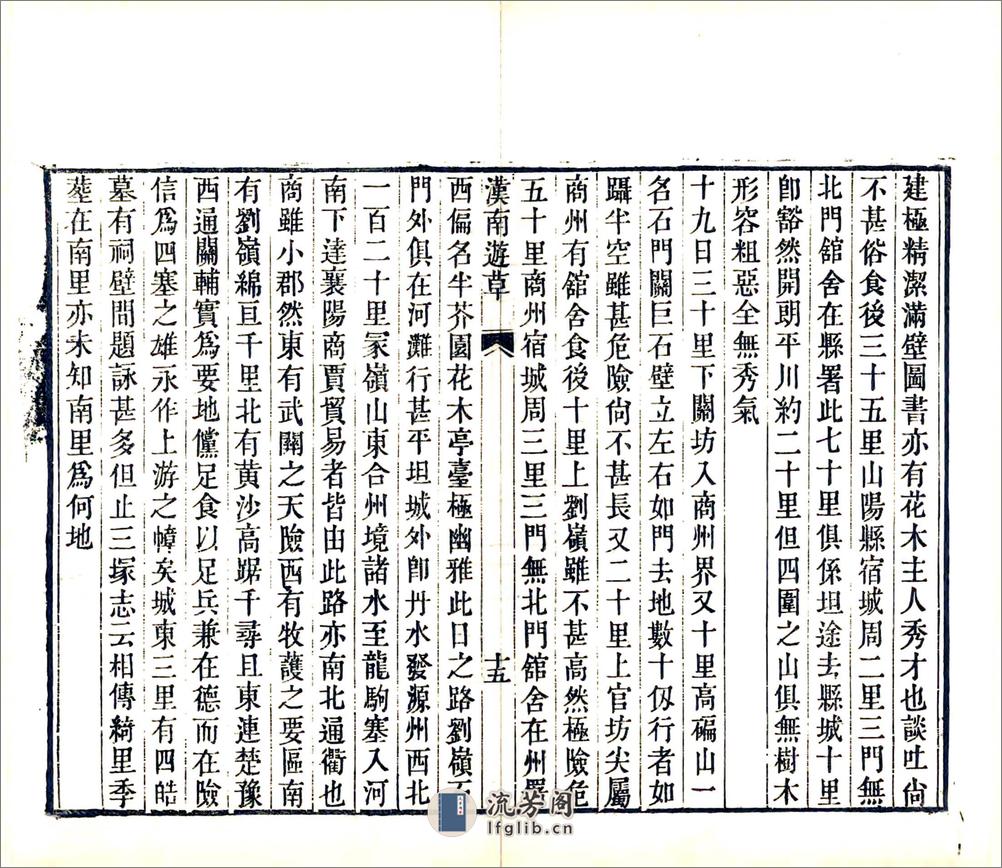 建極精潔滿壁圖書亦有花木主人秀才也談吐尙
不甚俗食後三十五里山陽縣宿城周二里三門無
北門舘舍在縣署此七十里俱係坦途去縣城十里
卽豁然開朗平川約二十里但四圍之山俱無樹木
形容粗惡全無秀氣
十九日三十里下關坊入商州界又十里高碥山一
名石門關巨石壁立左右如門去地數十仭行者如
躡半空雖甚危險尙不甚長又二十里上官坊尖屬
商州有舘舍食後十里上劉嶺雖不甚高然極險危
五十里商州宿城周三里三門無北門舘舍在州署
漢南遊草 十五
西偏名半芥園花木亭臺極幽雅此日之路劉嶺至
門外俱在河灘行甚平坦城外卽丹水發源州西北
一百二十里冢嶺山東合州境諸水至龍駒塞入河
南下達襄陽商賈貿易者皆由此路亦南北通衢也
商雖小郡然東有武關之天險西有牧護之要區南
有劉嶺綿亘千里北有黃沙高踞千尋且東連楚豫
西通關輔實爲要地儻足食以足兵兼在德而在險
信爲四塞之雄永作上游之幛矣城東三里有四皓
墓有祠壁間題詠甚多但止三塚志云相傳綺里季
塟在南里亦未知南里爲何地
流芳阁
lfglib.cn